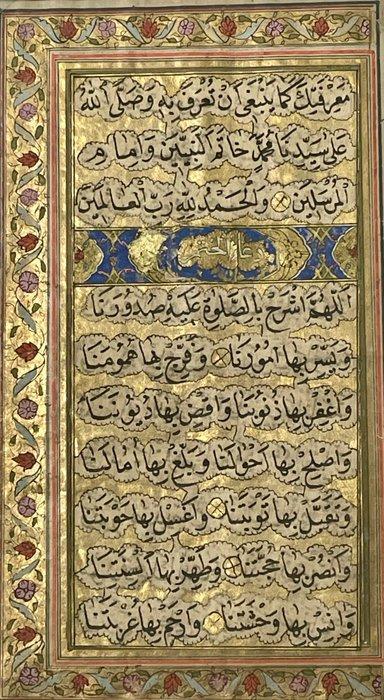 مَعْرِفَتِكَ كَمَا يَنْبَغِى اَنْ تُعْرَفَ بِهِ وَصَلَّى اللهُ
عَلٰى سَيِّدِنَا مُحَمَّدٍ خَاتَمِ النَّبِيّنَ وَاِمَامِ
الْمُرْسَلِينَ وَالْحَمْدُ لِلّٰهِ رَبِّ الْعَالَمِينَ
دعاء الختم
اَللّٰهُمَّ اشْرَحْ بِالصَّلٰوةِ عَلَيْهِ صُدُورَنَا
وَيَسِّرْ بِهَا اُمُورَنَا وَفَرِّجْ بِهَا هُمُومَنَا
وَاغْفِرْ بِهَا ذُنُوبَنَا وَاقْضِ بِهَا دُيُونَنَا
وَاَصْلِحْ بِهَا اَحْوَالَنَا وَبَلِّغْ بِهَا اٰمَالَنَا
وَتَقَبَّلْ بِهَا تَوْبَتَنَا وَاغْسِلْ بِهَا حَوْبَتَنَا
وَانْصُرْ بِهَا حُجَّتَنَا وَطَهِّرْ بِهَا اَلْسِنَتَنَا
وَاٰنِسْ بِهَا وَحْشَتَنَا وَارْحَمْ بِهَا غُرْبَتَنَا